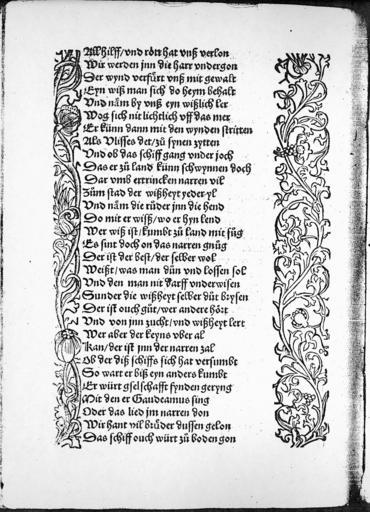 All hilff/vnd rött hat vnß verlon
Wir werden jnn die harr vndergon
Der wynd verfürt vnß mit gewalt
Eyn wiß man sich do heym behalt
Vnd näm by vnß eyn wißlich ler
Wog sich nit lichtlich vff das mer
Er künn dann mit den wynden stritten
Als Vlisses det/zů synen zytten
Vnd ob das schiff gang vnder joch
Das er zů land künn schwynnen doch
Dar vmb ertrincken narren vil
Zům stad der wißheyt yeder yl
Vnd näm die růder jnn die hend
Do mit er wiß/wo er hyn lend
Wer wiß ist/kumbt zů land mit fůg
Es sint doch on das narren gnůg
Der ist der best/der selber wol
Weißt/was man důn vnd lossen sol
Vnd den man nit darff vnderwisen
Sunder die wißheyt selber důt brysen
Der ist ouch gůt/wer andere hört
Vnd von jnn zucht/vnd wißheyt lert
Wer aber der keyns vber al
Kan/der ist jnn der narren zal
Ob der diß schiffs sich hat versumbt
So wart er biß eyn anders kumbt
Er würt gselschafft fynden geryng
Mit den er Gaudeamus sing
Oder das lied jm narren don
Wir hant vil brůder dussen gelon
Das schiff ouch würt zů boden gon